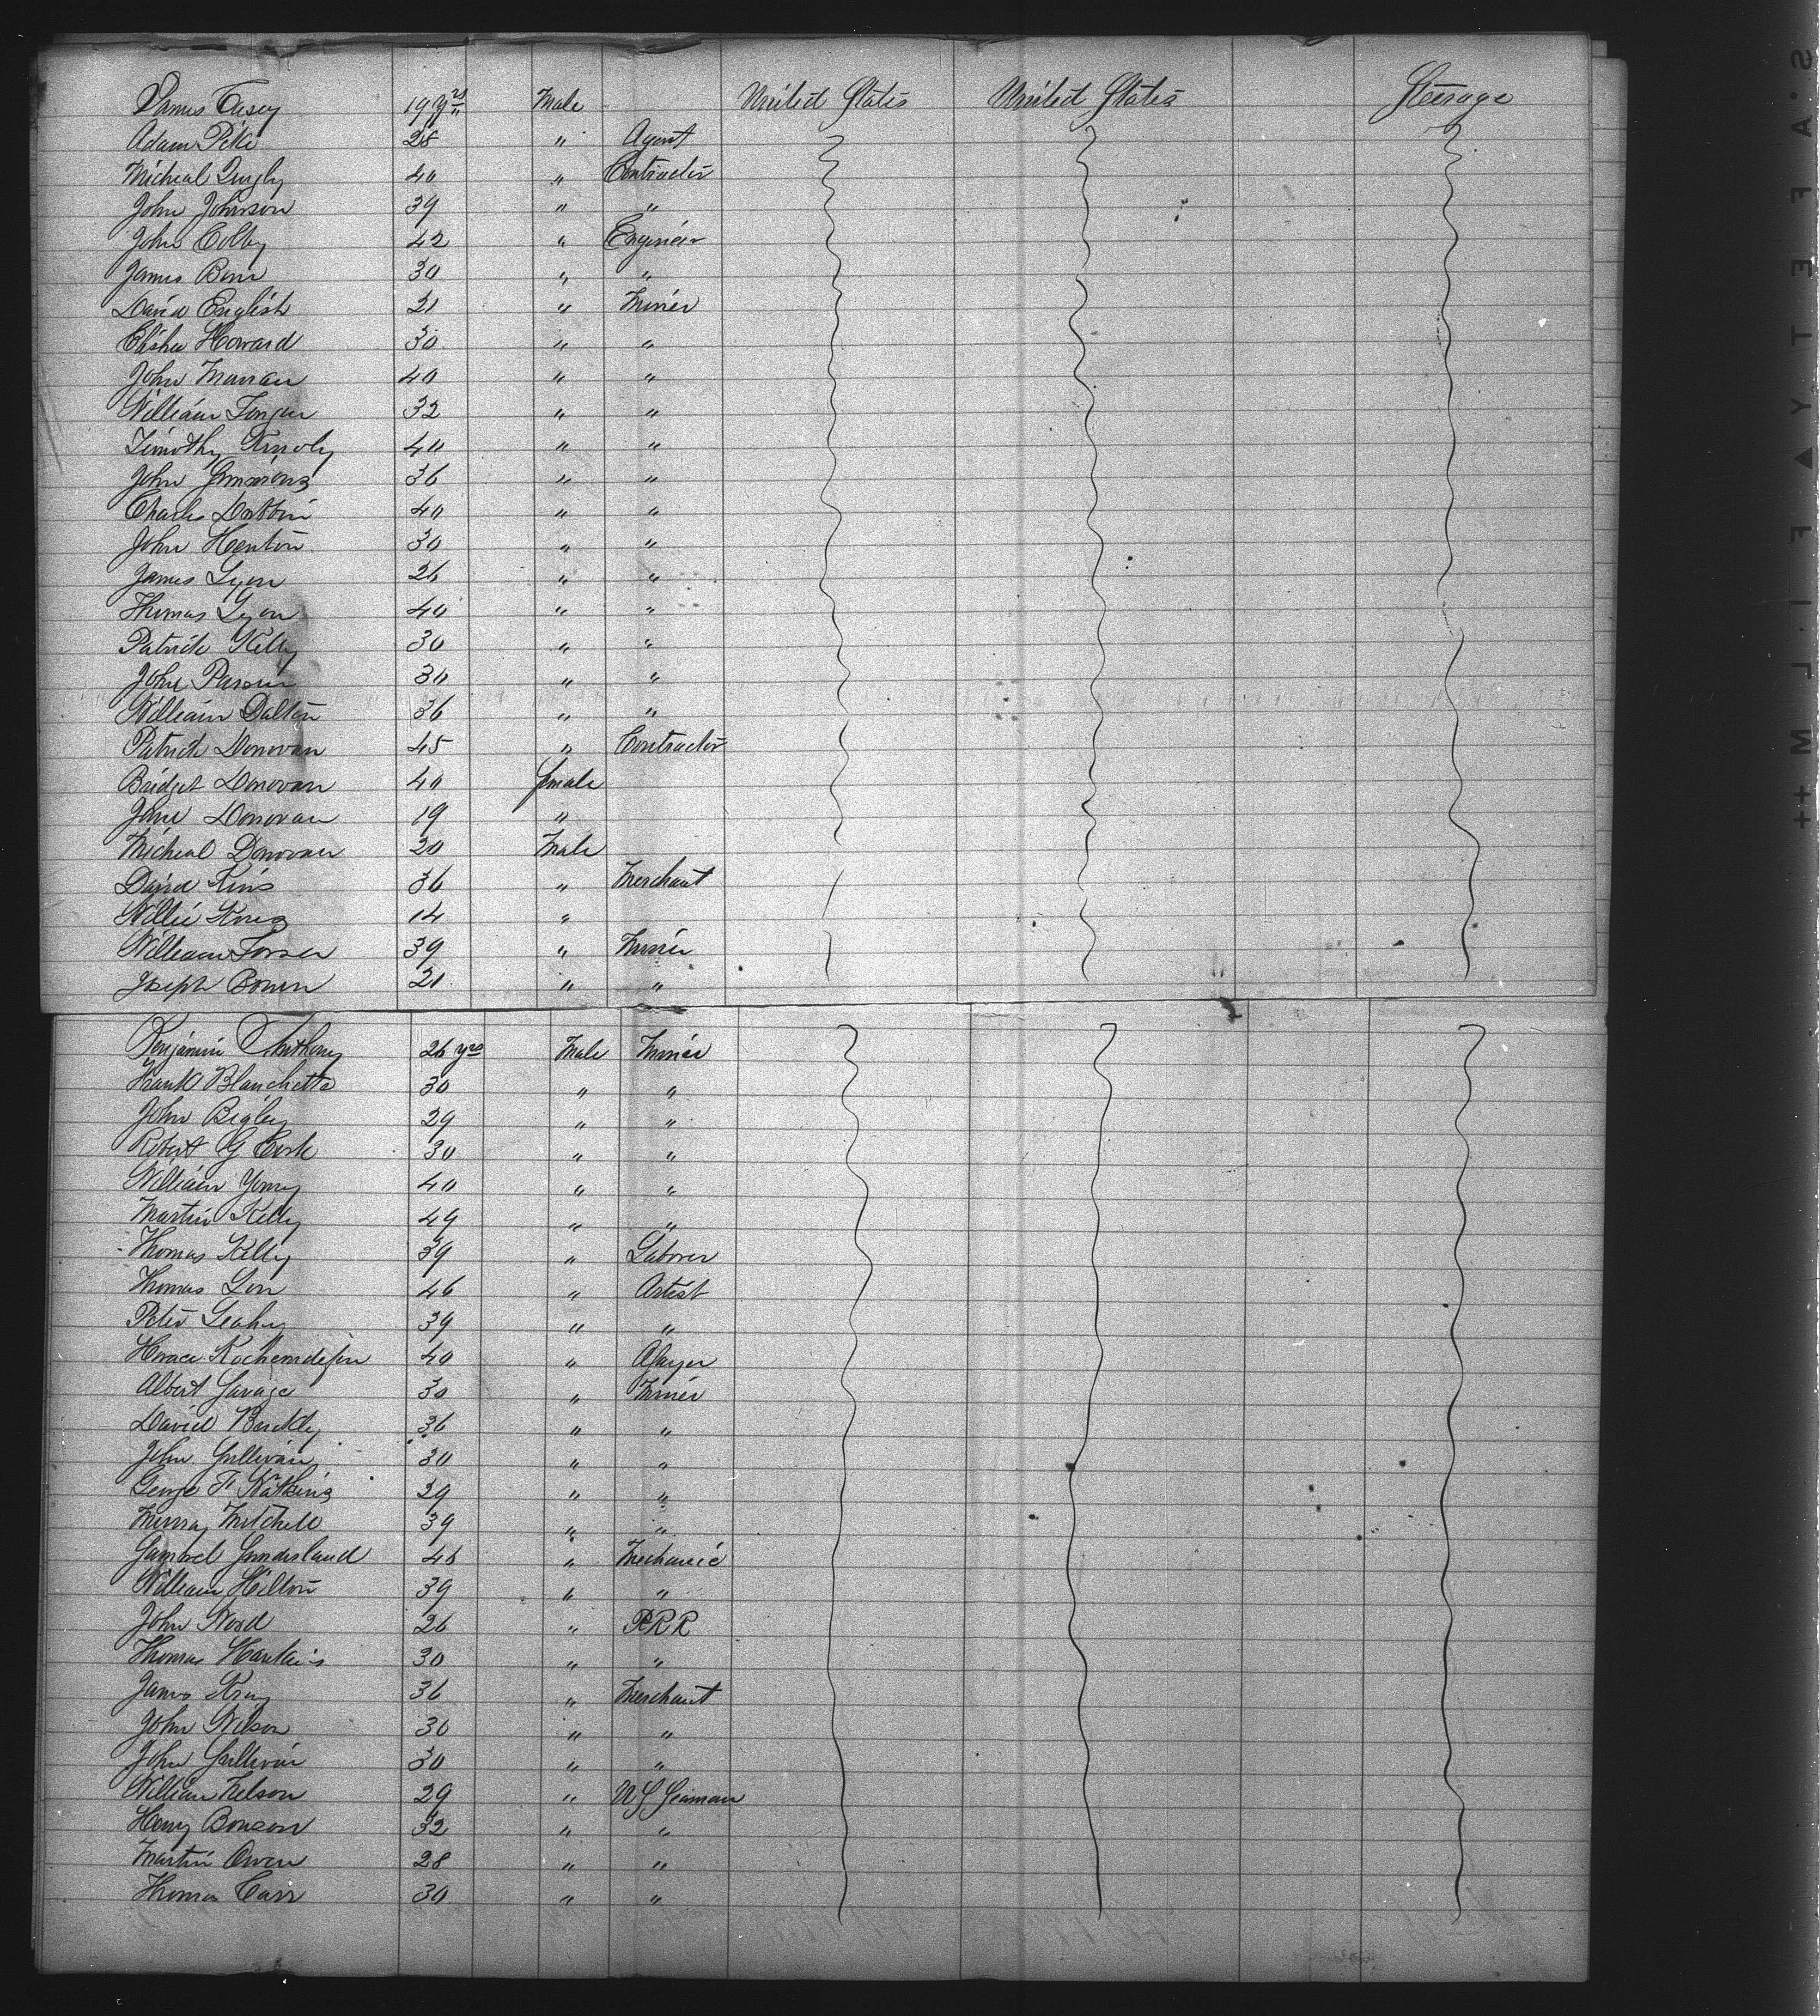 James Casey 19 yrs Male United States United States Steerage
Adam Pike 28 " Agent
Micheal Quigly 40 " Contractor
John Johnson 39 " "
John Colby 42 " Engineer
James Bonn 30 " "
David English 21 " Miner
Elisha Howard 30 " "
John Marran 40 " "
William 32 " "
Timothy 40 " "
John Simmons 36 " "
Charles Dobbin 40 " "
John Henton 30 " "
James Lyon 26 " "
Thomas Lyon 40 " "
Patrick Kelly 30 " "
John 30 " "
William Dalton 36 " "
Patrick Donovan 45 " Contractor
Bridget Donovan 40 female
Jane Donovan 19 "
Micheal Donovan 20 Male
David 36 " Merchant
Willie 14 "
William 39 " Miner
Joseph Bowen 21 " "
Benjamin Anthony 26 yrs Male Miner
Frank Blanchette 30 " "
John Bigley 29 " "
Robert G Cook 30 " "
William Young 40 " "
Martin Kelly 49 " "
Thomas Kelly 39 " Laborer
Thomas 46 " Artist
Peter Leahy 39 " "
Horace 40 " Assayer
Albert Savage 30 " Miner
David Buckly 36 " "
John Sullivan 30 " "
George F Watkins 29 " "
Murray Mitchell 39 " "
Samuel Sunderland 46 " Mechanic
William Hilton 39 " "
John Ward 26 " PRR
Thomas Hawkins 30 " "
James 36 " Merchant
John Wilson 30 " "
John Sullivan 30 " "
William Nelson 29 " US Seaman
Henry Bonson 32 " "
Martin Owen 28 " "
Thomas Carr 30 " "